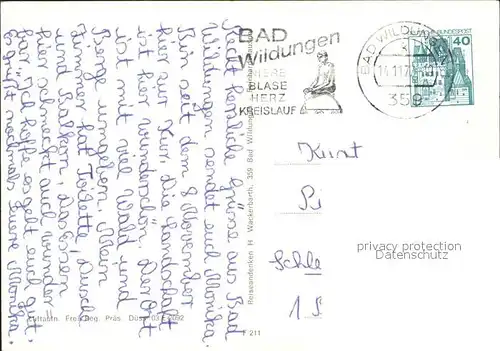 Recht herzliche Grüsse aus Bad
Wildungen sendet euch Monika.
Bin seit dem 8 November
hier zur Kur. Die Landschaft
ist hier wunderschön. Der Ort
ist mit viel Wald und
Berge umgeben. Mein
Zimmer hat Toilette, Dusche
und Balkon, das Essen
hier schmeckt auch wunder-
bar. Ich hoffe es geht euch gut.
Es grüßt nochmals Euere Monika.
Luftaufn. Freig. Reg. Präs. Düss.
F 211
Reiseandenken H. Wackerbarth, 359 Bad Wildungen
BAD
Wildungen
NIERE
BLASE
HERZ
KREISLAUF
BAD WILDUNGEN
14.11.7
359
BUNDESPOST
40
Kurt
Pi
Schle
1 S
privacy protection
Datenschutz